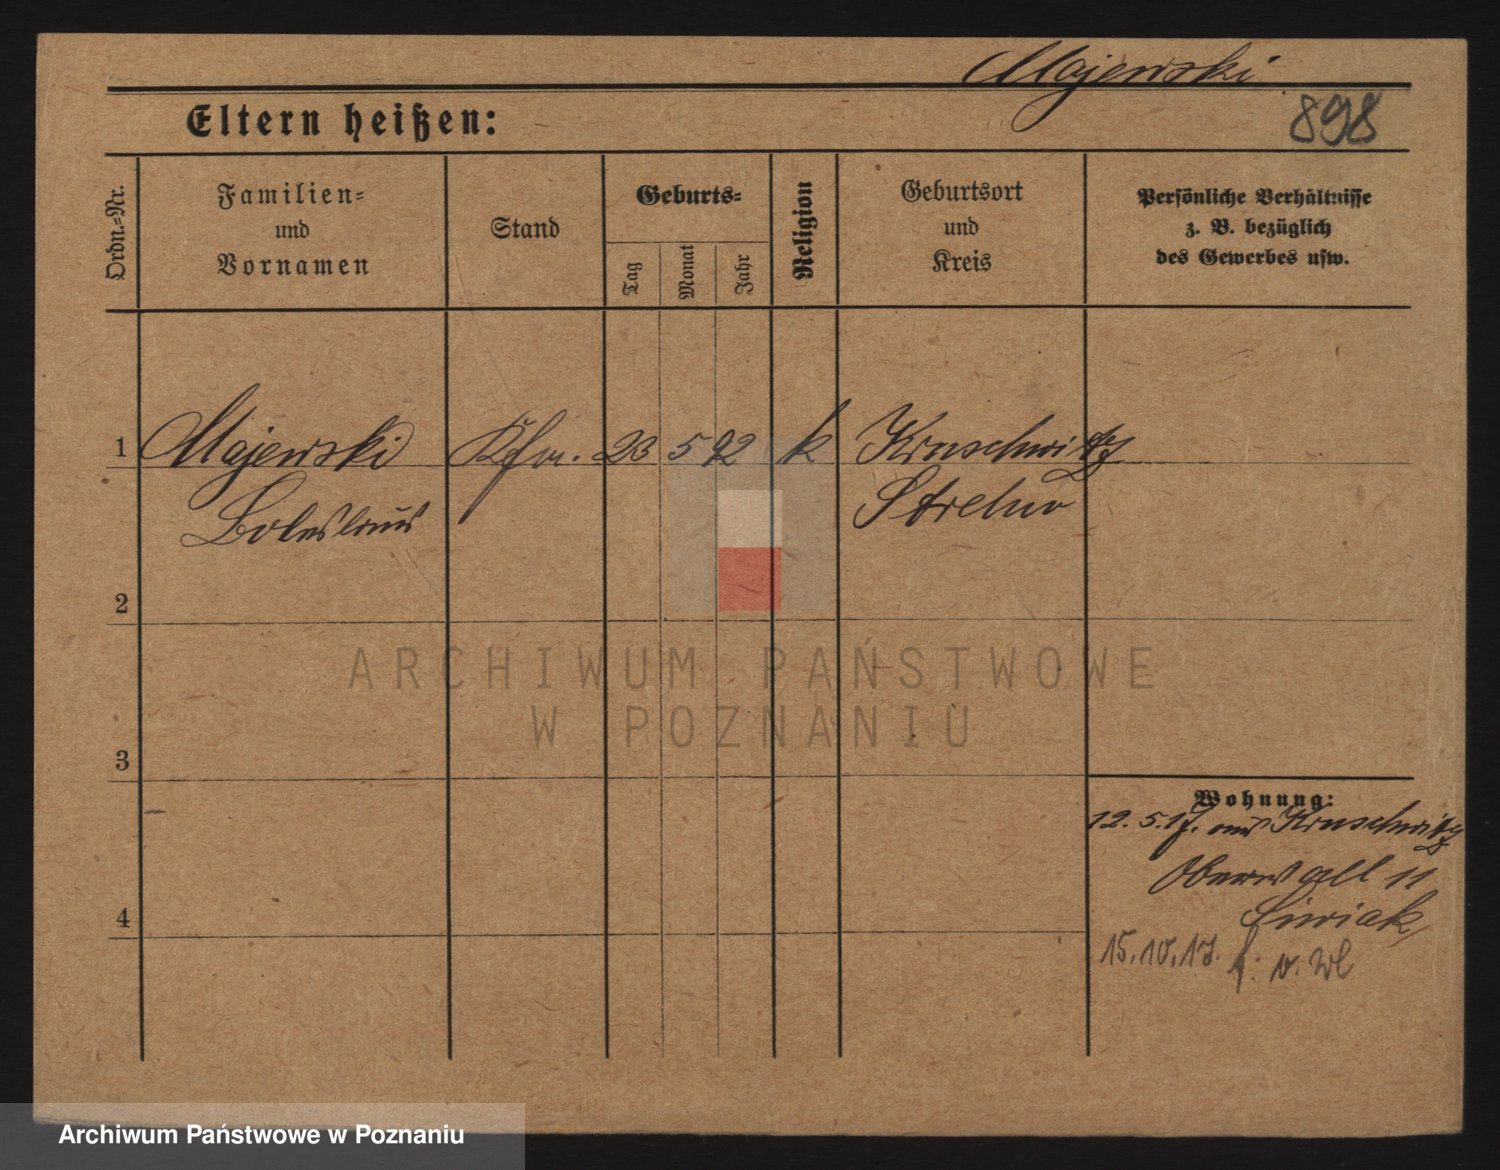 Majewski
898
Eltern heißen:
Ordn.-Nr.
Familien-
und
Vornamen
Stand
Geburts-
Tag
Monat
Jahr
Religion
Geburtsort
und
Kreis
Persönliche Verhältnisse
z. B. bezüglich
des Gewerbes usw.
1 Majewski Kfm. 23 5 92 k Kruschwitz
Boleslaus Strelno
2
ARCHIWUM PAŃSTWOWE
W POZNANIU
3
Wohnung:
12. 5. 17. aus Kruschwitz
Oberwall 11
4
Siwiak
15.10.17.
Archiwum Państwowe w Poznaniu